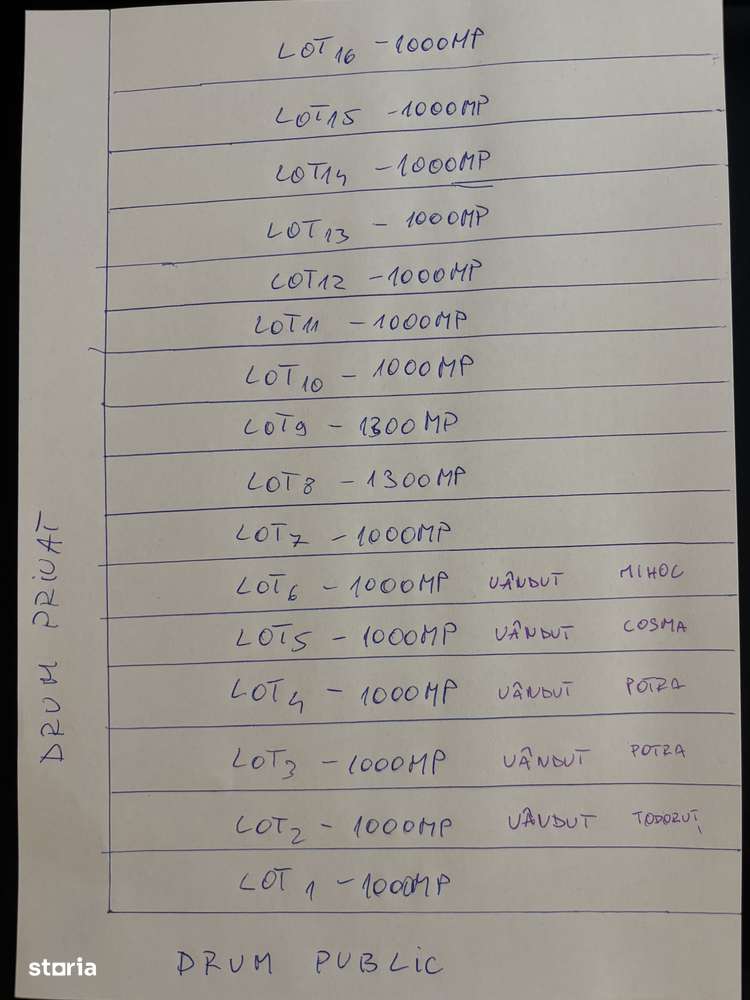 LOT 16 - 1000MP
LOT 15 - 1000MP
LOT 14 - 1000MP
LOT 13 - 1000MP
LOT 12 - 1000MP
LOT 11 - 1000MP
LOT 10 - 1000MP
LOT 9 - 1300MP
LOT 8 - 1300MP
LOT 7 - 1000MP
LOT 6 - 1000MP VÂNDUT MIHOC
LOT 5 - 1000MP VÂNDUT COSMA
LOT 4 - 1000MP VÂNDUT POTRA
LOT 3 - 1000MP VÂNDUT POTRA
LOT 2 - 1000MP VÂNDUT TODORUȚ
LOT 1 - 1000MP
DRUM PRIVAT
DRUM PUBLIC
storia